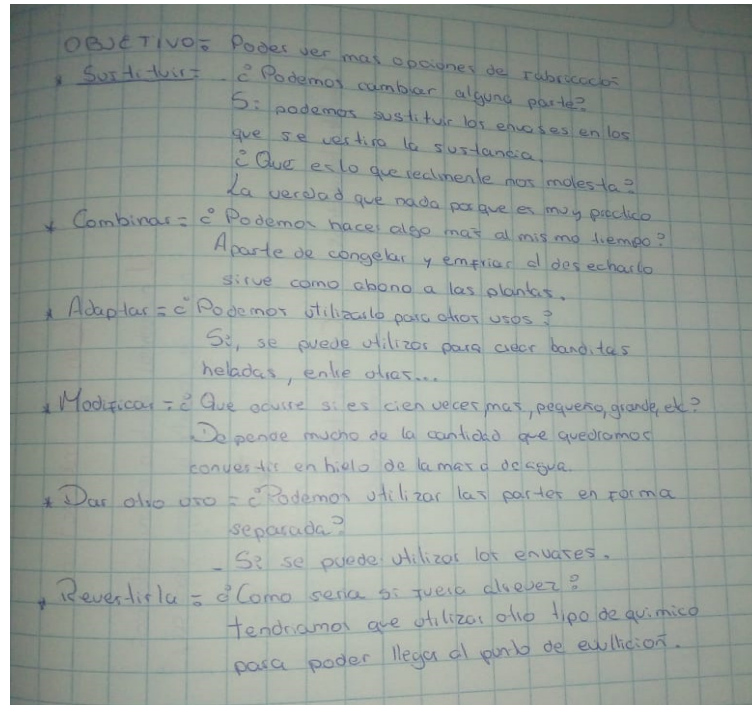 OBJETIVO= Poder ver mas opciones de fabricacion
* Sustituir= ¿Podemos cambiar alguna parte?
Si podemos sustituir los envases en los
que se vertira la sustancia.
¿Que es lo que realmente nos molesta?
La verdad que nada porque es muy practico
* Combinar= ¿Podemos hacer algo mas al mismo tiempo?
Aparte de congelar y emfriar al desecharlo
sirve como abono a las plantas.
* Adaptar= ¿Podemos utilizarlo para otros usos?
Si, se puede utilizar para crear banditas
heladas, entre otras...
* Modificar= ¿Que ocurre si es cien veces mas, pequeño, grande, etc?
Depende mucho de la cantidad que quedramos
convertir en hielo de la masa de agua.
* Dar otro uso = ¿Podemos utilizar las partes en forma
separada?
- Si se puede utilizar los envases.
* Revertirla = ¿Como seria si fuera al revez?
tendriamos que utilizar otro tipo de quimico
para poder llegar al punto de evullicion.